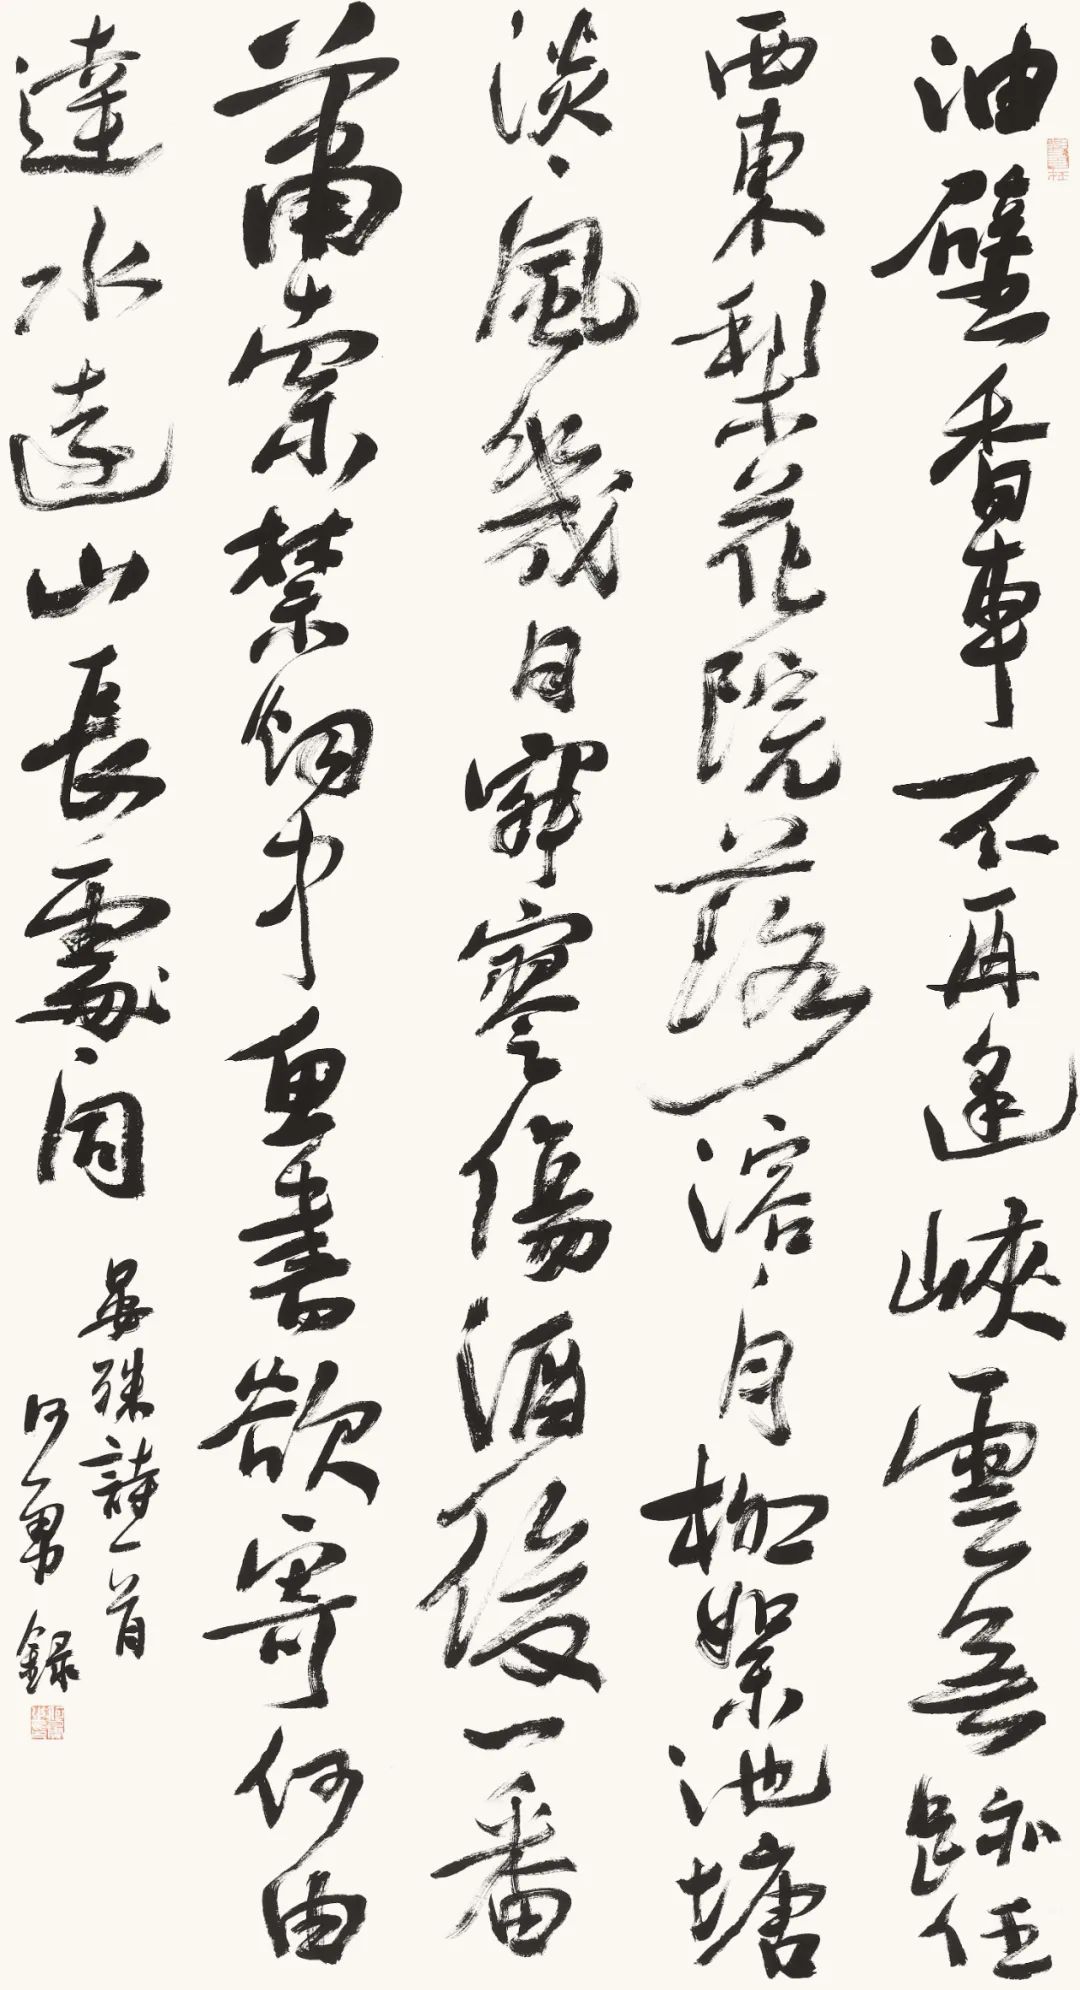 油壁香車不再逢峽雲無跡任
西東梨花院落溶、月柳絮池塘
淡、風幾日寂寥傷酒後一番
蕭索禁烟中魚書欲寄何由
達水遠山長處、同
晏殊詩一首
何勇錄